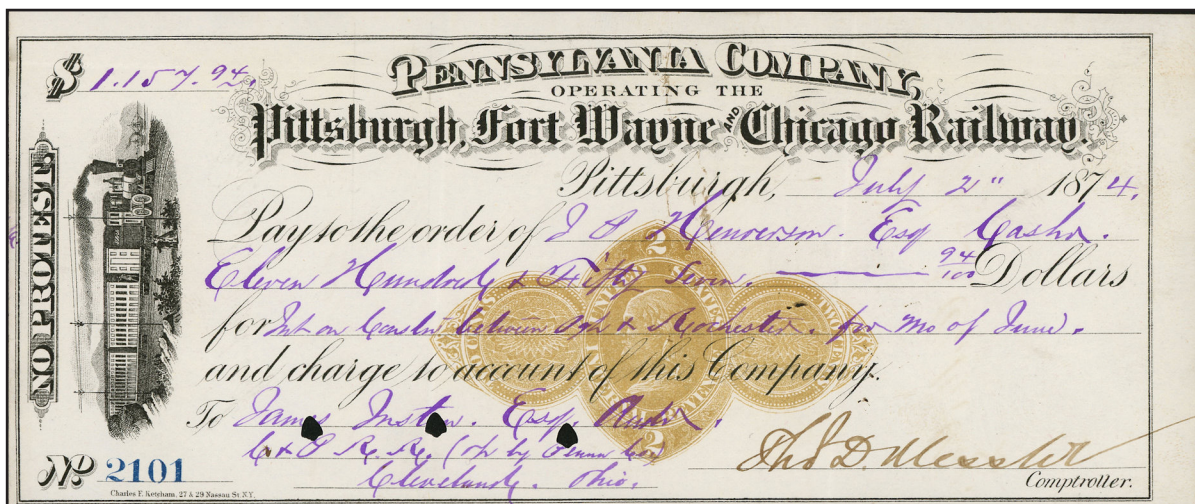 $ 1.157.94.
PENNSYLVANIA COMPANY,
OPERATING THE
Pittsburgh, Fort Wayne AND Chicago Railway.
NO PROTEST.
Pittsburgh, July 2" 1874.
Pay to the order of J P Henderson. Esq Cashr.
Eleven Hundred & Fifty Seven. 94/100 Dollars
for Int on Constn between & Rochester. for mo of June.
and charge to account of this Company.
To James Esqr. Cashr.
C & P R. R. (Op by Penna Co)
Cleveland. Ohio.
No. 2101
Thos D. Messler
Comptroller.
Charles F. Ketcham, 27 & 29 Nassau St. N.Y.
2
2